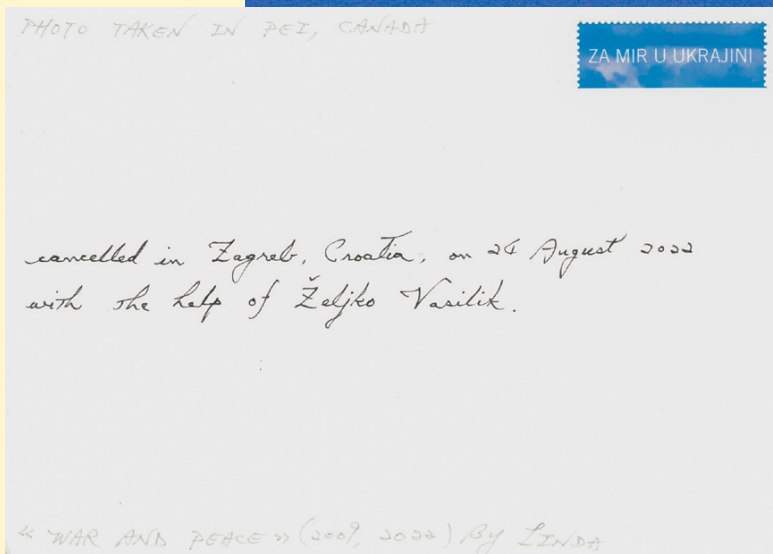 PHOTO TAKEN IN PEI, CANADA
ZA MIR U UKRAJINI
cancelled in Zagreb, Croatia, on 24 August 2022
with the help of Željko Vasilik.
« WAR AND PEACE » (2009, 2022) By LINDA